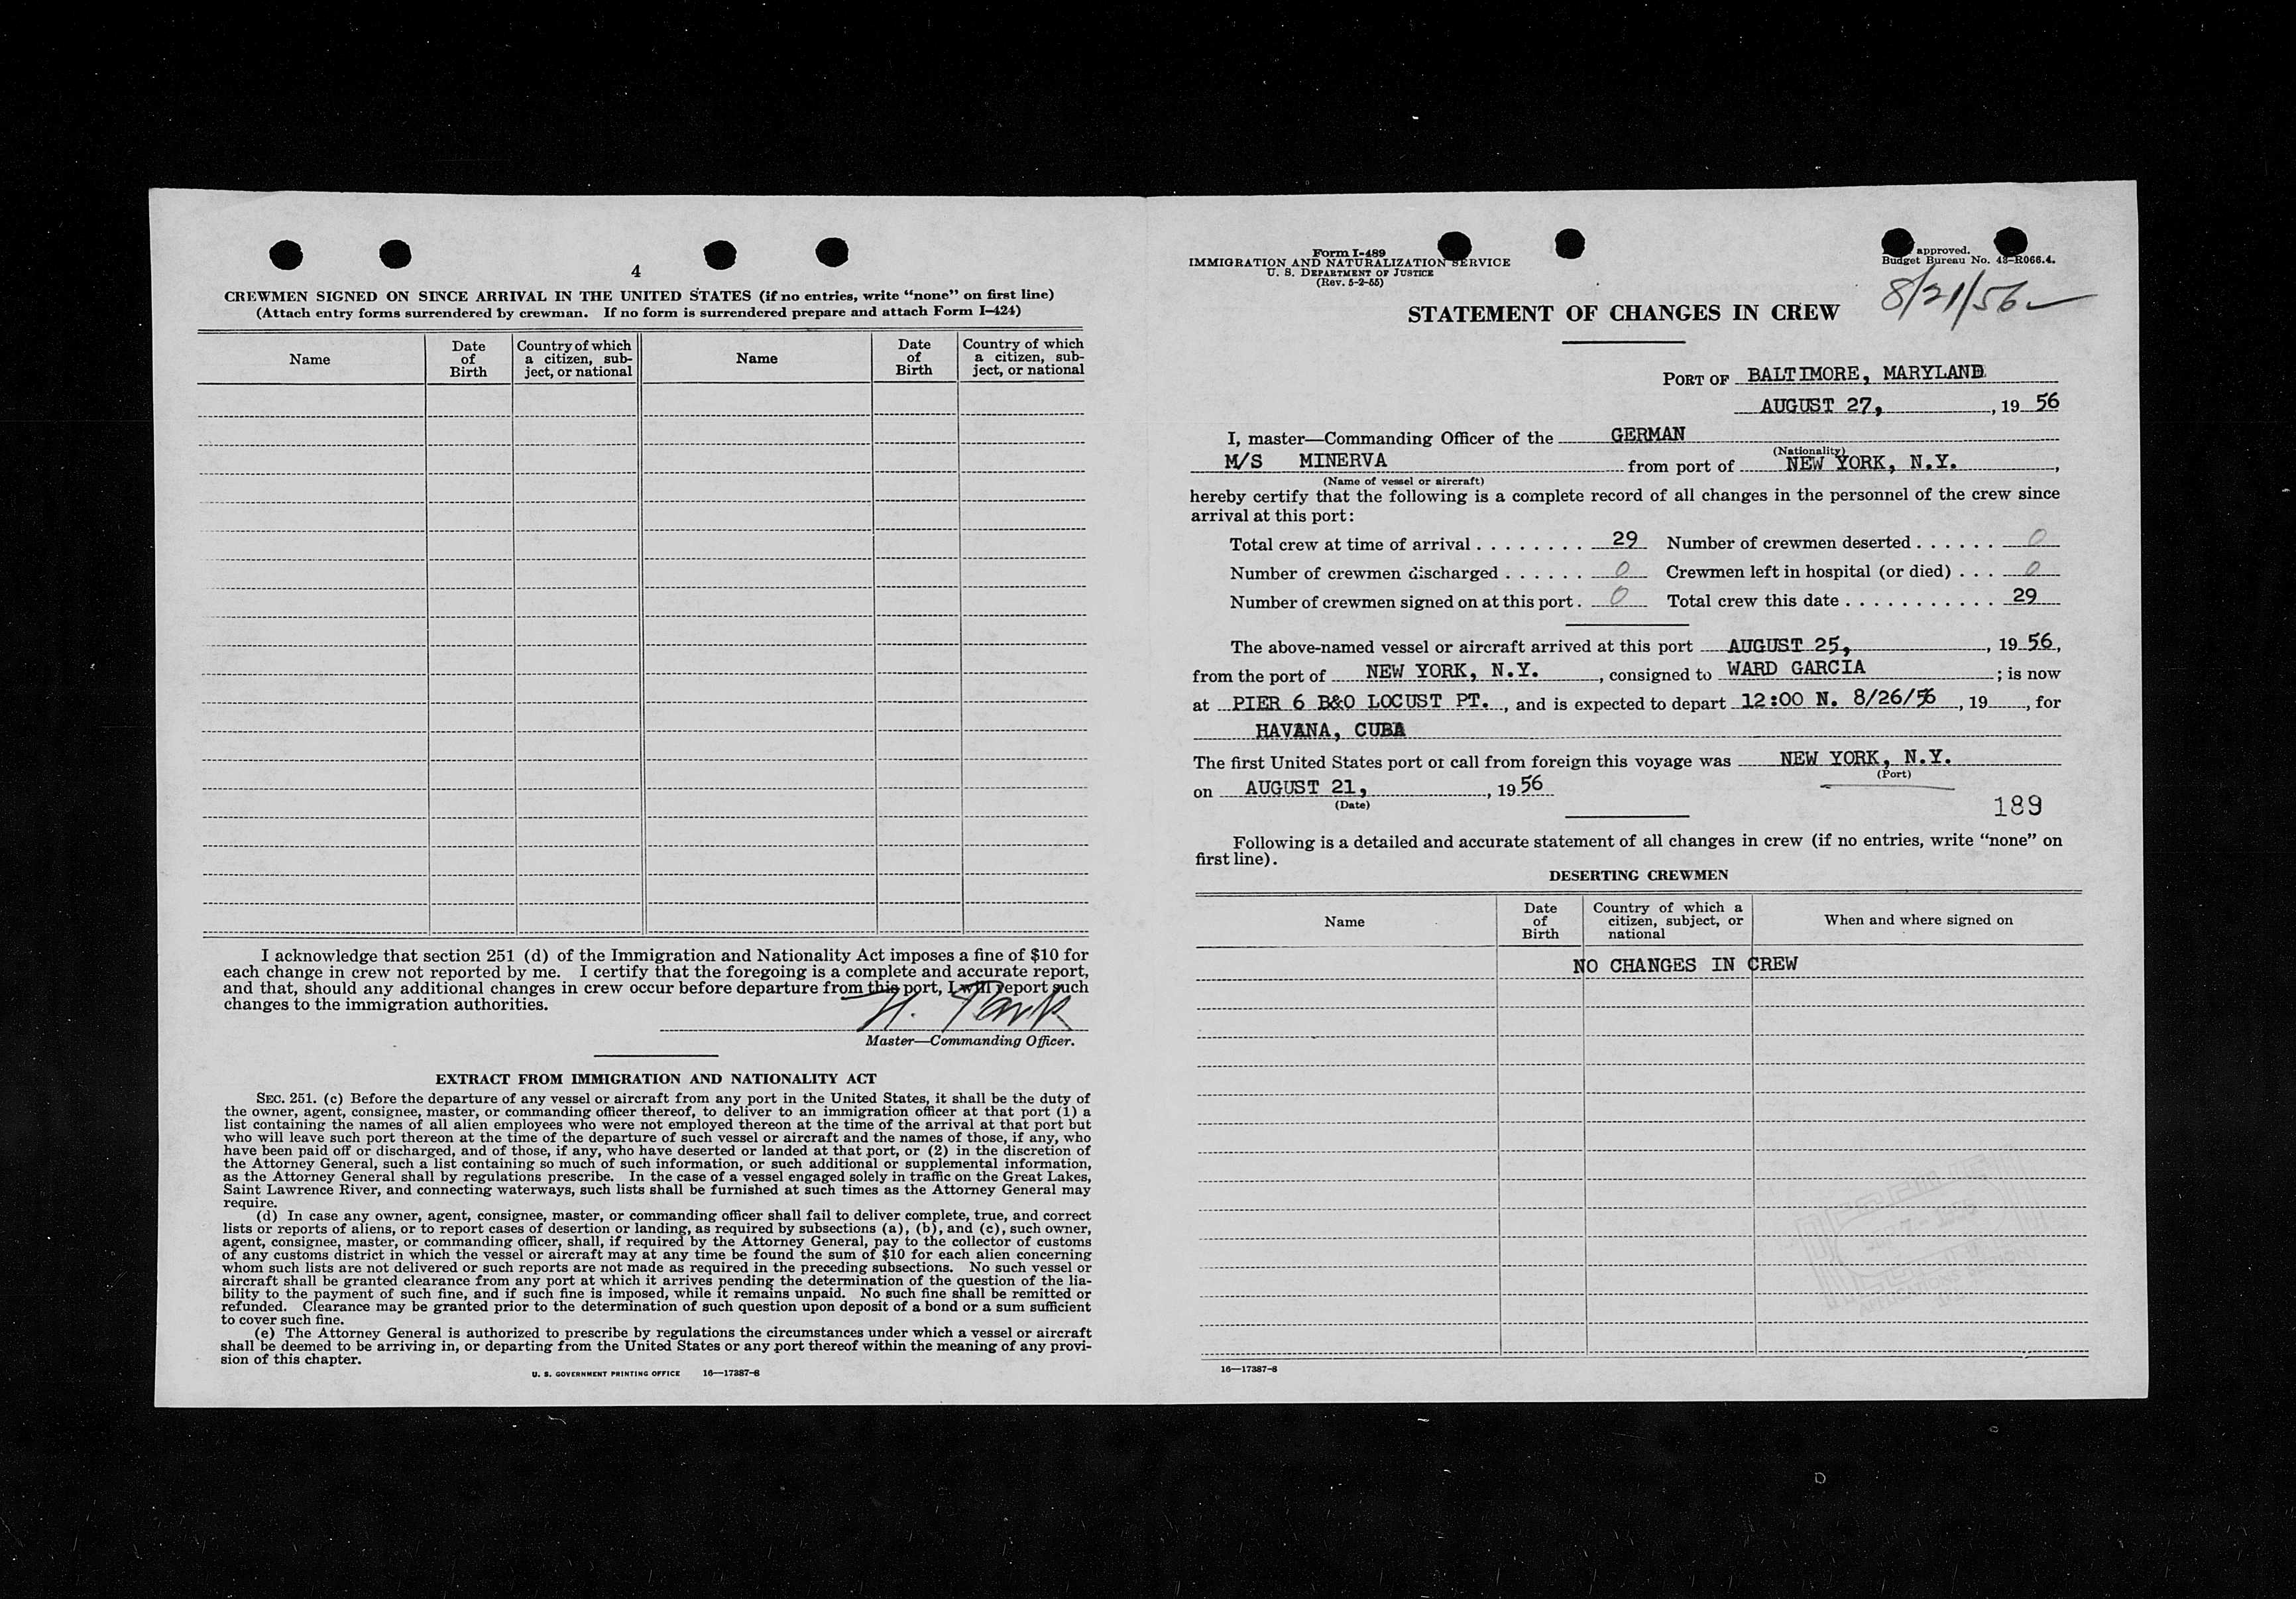 4
CREWMEN SIGNED ON SINCE ARRIVAL IN THE UNITED STATES (if no entries, write "none" on first line)
(Attach entry forms surrendered by crewman. If no form is surrendered prepare and attach Form I-424)
Name
Date of Birth
Country of which a citizen, sub-ject, or national
Name
Date of Birth
Country of which a citizen, sub-ject, or national
I acknowledge that section 251 (d) of the Immigration and Nationality Act imposes a fine of $10 for
each change in crew not reported by me. I certify that the foregoing is a complete and accurate report,
and that, should any additional changes in crew occur before departure from this port, I will report such
changes to the immigration authorities.
Master—Commanding Officer.
EXTRACT FROM IMMIGRATION AND NATIONALITY ACT
SEC. 251. (c) Before the departure of any vessel or aircraft from any port in the United States, it shall be the duty of
the owner, agent, consignee, master, or commanding officer thereof, to deliver to an immigration officer at that port (1) a
list containing the names of all alien employees who were not employed thereon at the time of the arrival at that port but
who will leave such port thereon at the time of the departure of such vessel or aircraft and the names of those, if any, who
have been paid off or discharged, and of those, if any, who have deserted or landed at that port, or (2) in the discretion of
the Attorney General, such a list containing so much of such information, or such additional or supplemental information,
as the Attorney General shall by regulations prescribe. In the case of a vessel engaged solely in traffic on the Great Lakes,
Saint Lawrence River, and connecting waterways, such lists shall be furnished at such times as the Attorney General may
require.
(d) In case any owner, agent, consignee, master, or commanding officer shall fail to deliver complete, true, and correct
lists or reports of aliens, or to report cases of desertion or landing, as required by subsections (a), (b), and (c), such owner,
agent, consignee, master, or commanding officer, shall, if required by the Attorney General, pay to the collector of customs
of any customs district in which the vessel or aircraft may at any time be found the sum of $10 for each alien concerning
whom such lists are not delivered or such reports are not made as required in the preceding subsections. No such vessel or
aircraft shall be granted clearance from any port at which it arrives pending the determination of the question of the lia-
bility to the payment of such fine, and if such fine is imposed, while it remains unpaid. No such fine shall be remitted or
refunded. Clearance may be granted prior to the determination of such question upon deposit of a bond or a sum sufficient
to cover such fine.
(e) The Attorney General is authorized to prescribe by regulations the circumstances under which a vessel or aircraft
shall be deemed to be arriving in, or departing from the United States or any port thereof within the meaning of any provi-
sion of this chapter.
U. S. GOVERNMENT PRINTING OFFICE 16—17387-8
Form I-489
IMMIGRATION AND NATURALIZATION SERVICE
U. S. DEPARTMENT OF JUSTICE
(Rev. 5-2-55)
approved.
Budget Bureau No. 43-R066.4.
8/21/56
STATEMENT OF CHANGES IN CREW
PORT OF BALTIMORE, MARYLAND
AUGUST 27, , 19 56
I, master—Commanding Officer of the GERMAN
(Nationality)
M/S MINERVA from port of NEW YORK, N.Y. ,
(Name of vessel or aircraft)
hereby certify that the following is a complete record of all changes in the personnel of the crew since
arrival at this port:
Total crew at time of arrival . . . . . . . . 29 Number of crewmen deserted . . . . . . 0
Number of crewmen discharged . . . . . . 0 Crewmen left in hospital (or died) . . . 0
Number of crewmen signed on at this port . 0 Total crew this date . . . . . . . . . . . 29
The above-named vessel or aircraft arrived at this port AUGUST 25, , 19 56,
from the port of NEW YORK, N.Y. , consigned to WARD GARCIA ; is now
at PIER 6 B&O LOCUST PT. , and is expected to depart 12:00 N. 8/26/56 , 19 , for
HAVANA, CUBA
The first United States port of call from foreign this voyage was NEW YORK, N.Y.
(Port)
on AUGUST 21, , 19 56
(Date)
189
Following is a detailed and accurate statement of all changes in crew (if no entries, write "none" on
first line).
DESERTING CREWMEN
Name
Date of Birth
Country of which a citizen, subject, or national
When and where signed on
NO CHANGES IN CREW
16—17387-8